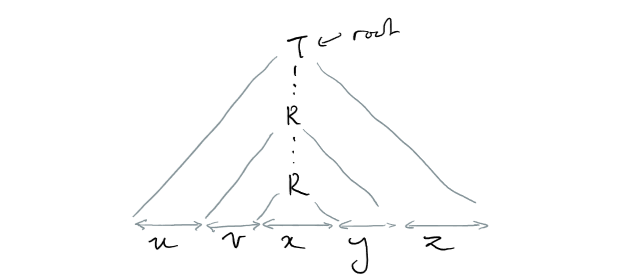 T ← root
R
R
u v x y z